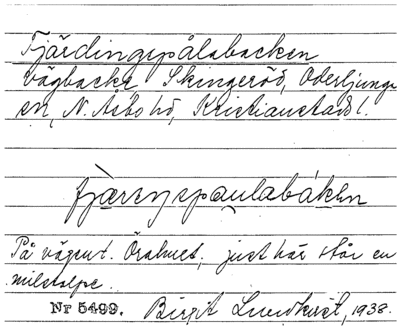 Fjärdingspålabacken
vägbacke, Skingeröd, Oderljunga
sn, N. Åsbo hd, Kristianstads l.
fjæreŋspaulabákən
På vägen t. Örahuset, just här står en
milstolpe.
Nr 5499. Birgit Lundkvist, 1938.